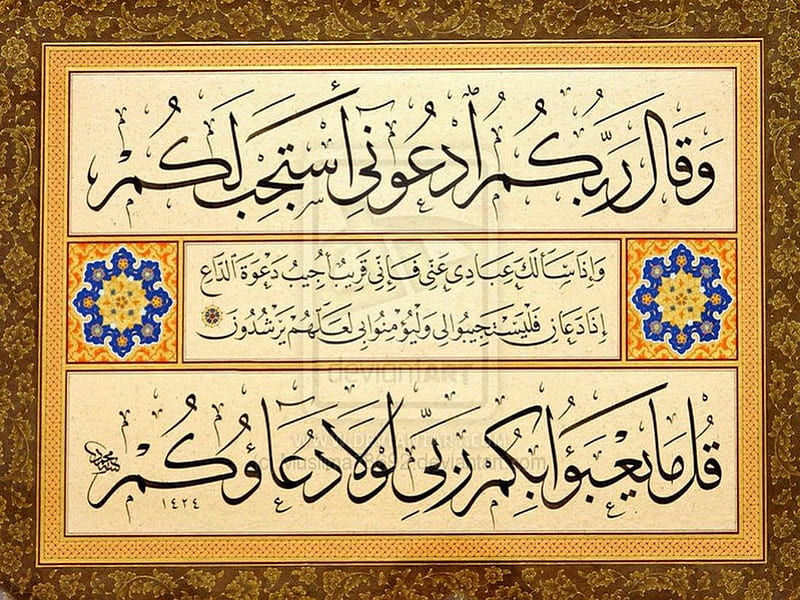 وَقَالَ رَبُّكُمُ ادْعُونِي أَسْتَجِبْ لَكُمْ
وَإِذَا سَأَلَكَ عِبَادِي عَنِّي فَإِنِّي قَرِيبٌ أُجِيبُ دَعْوَةَ الدَّاعِ
إِذَا دَعَانِ فَلْيَسْتَجِيبُوا لِي وَلْيُؤْمِنُوا بِي لَعَلَّهُمْ يَرْشُدُونَ
deviantART
قُلْ مَا يَعْبَؤُا بِكُمْ رَبِّي لَوْلَا دُعَاؤُكُمْ
١٤٢٤